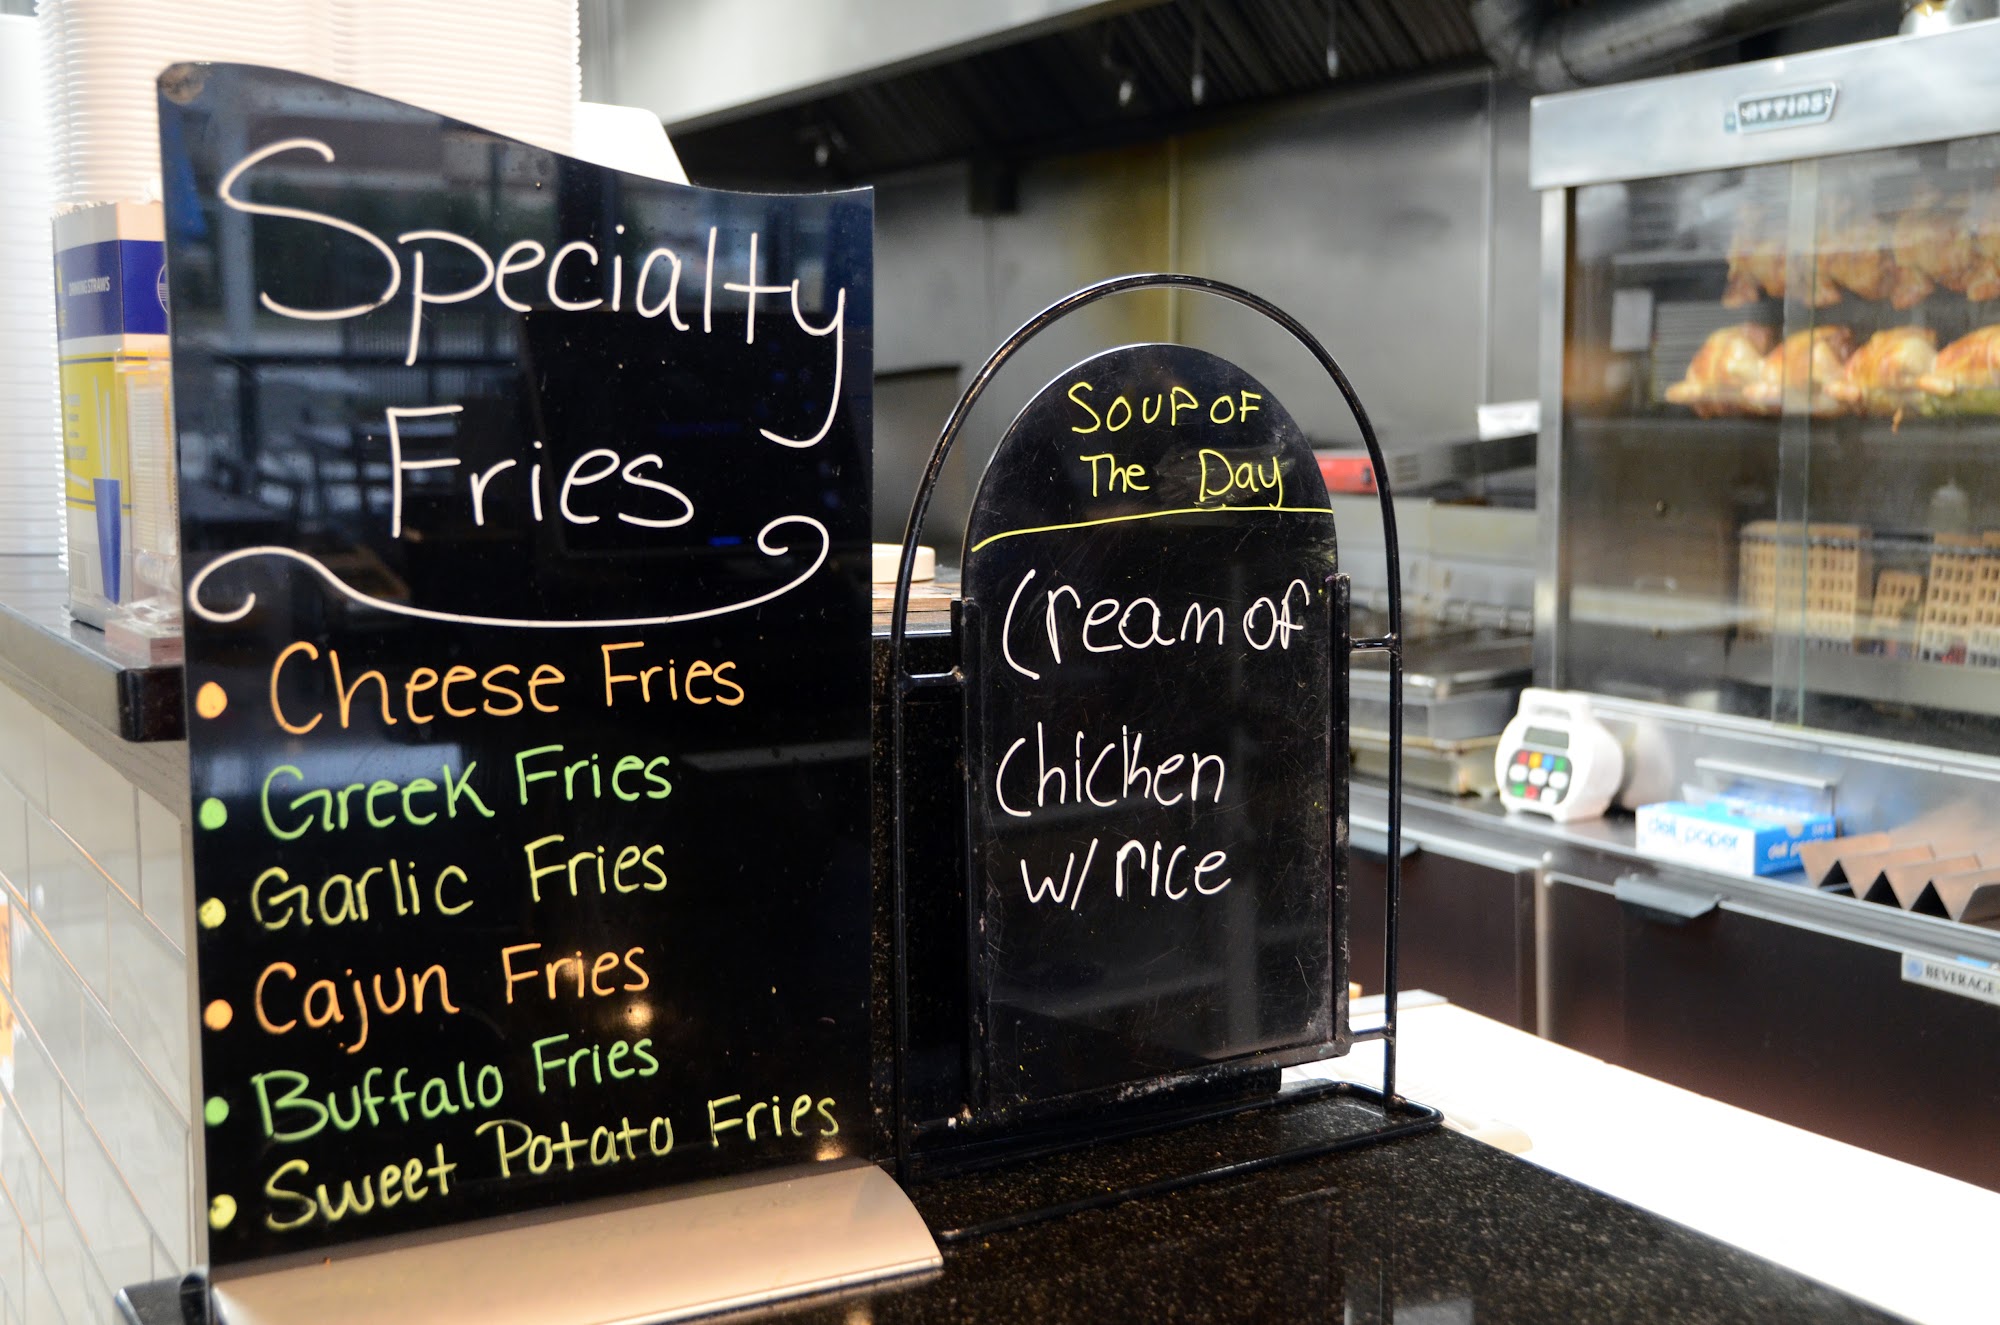 Specialty
Fries
• Cheese Fries
• Greek Fries
• Garlic Fries
• Cajun Fries
• Buffalo Fries
• Sweet Potato Fries
Soup of
The Day
Cream of
Chicken
w/ rice
DRINKING STRAWS
ATTIAS
deli paper
deli
BEVERAGE